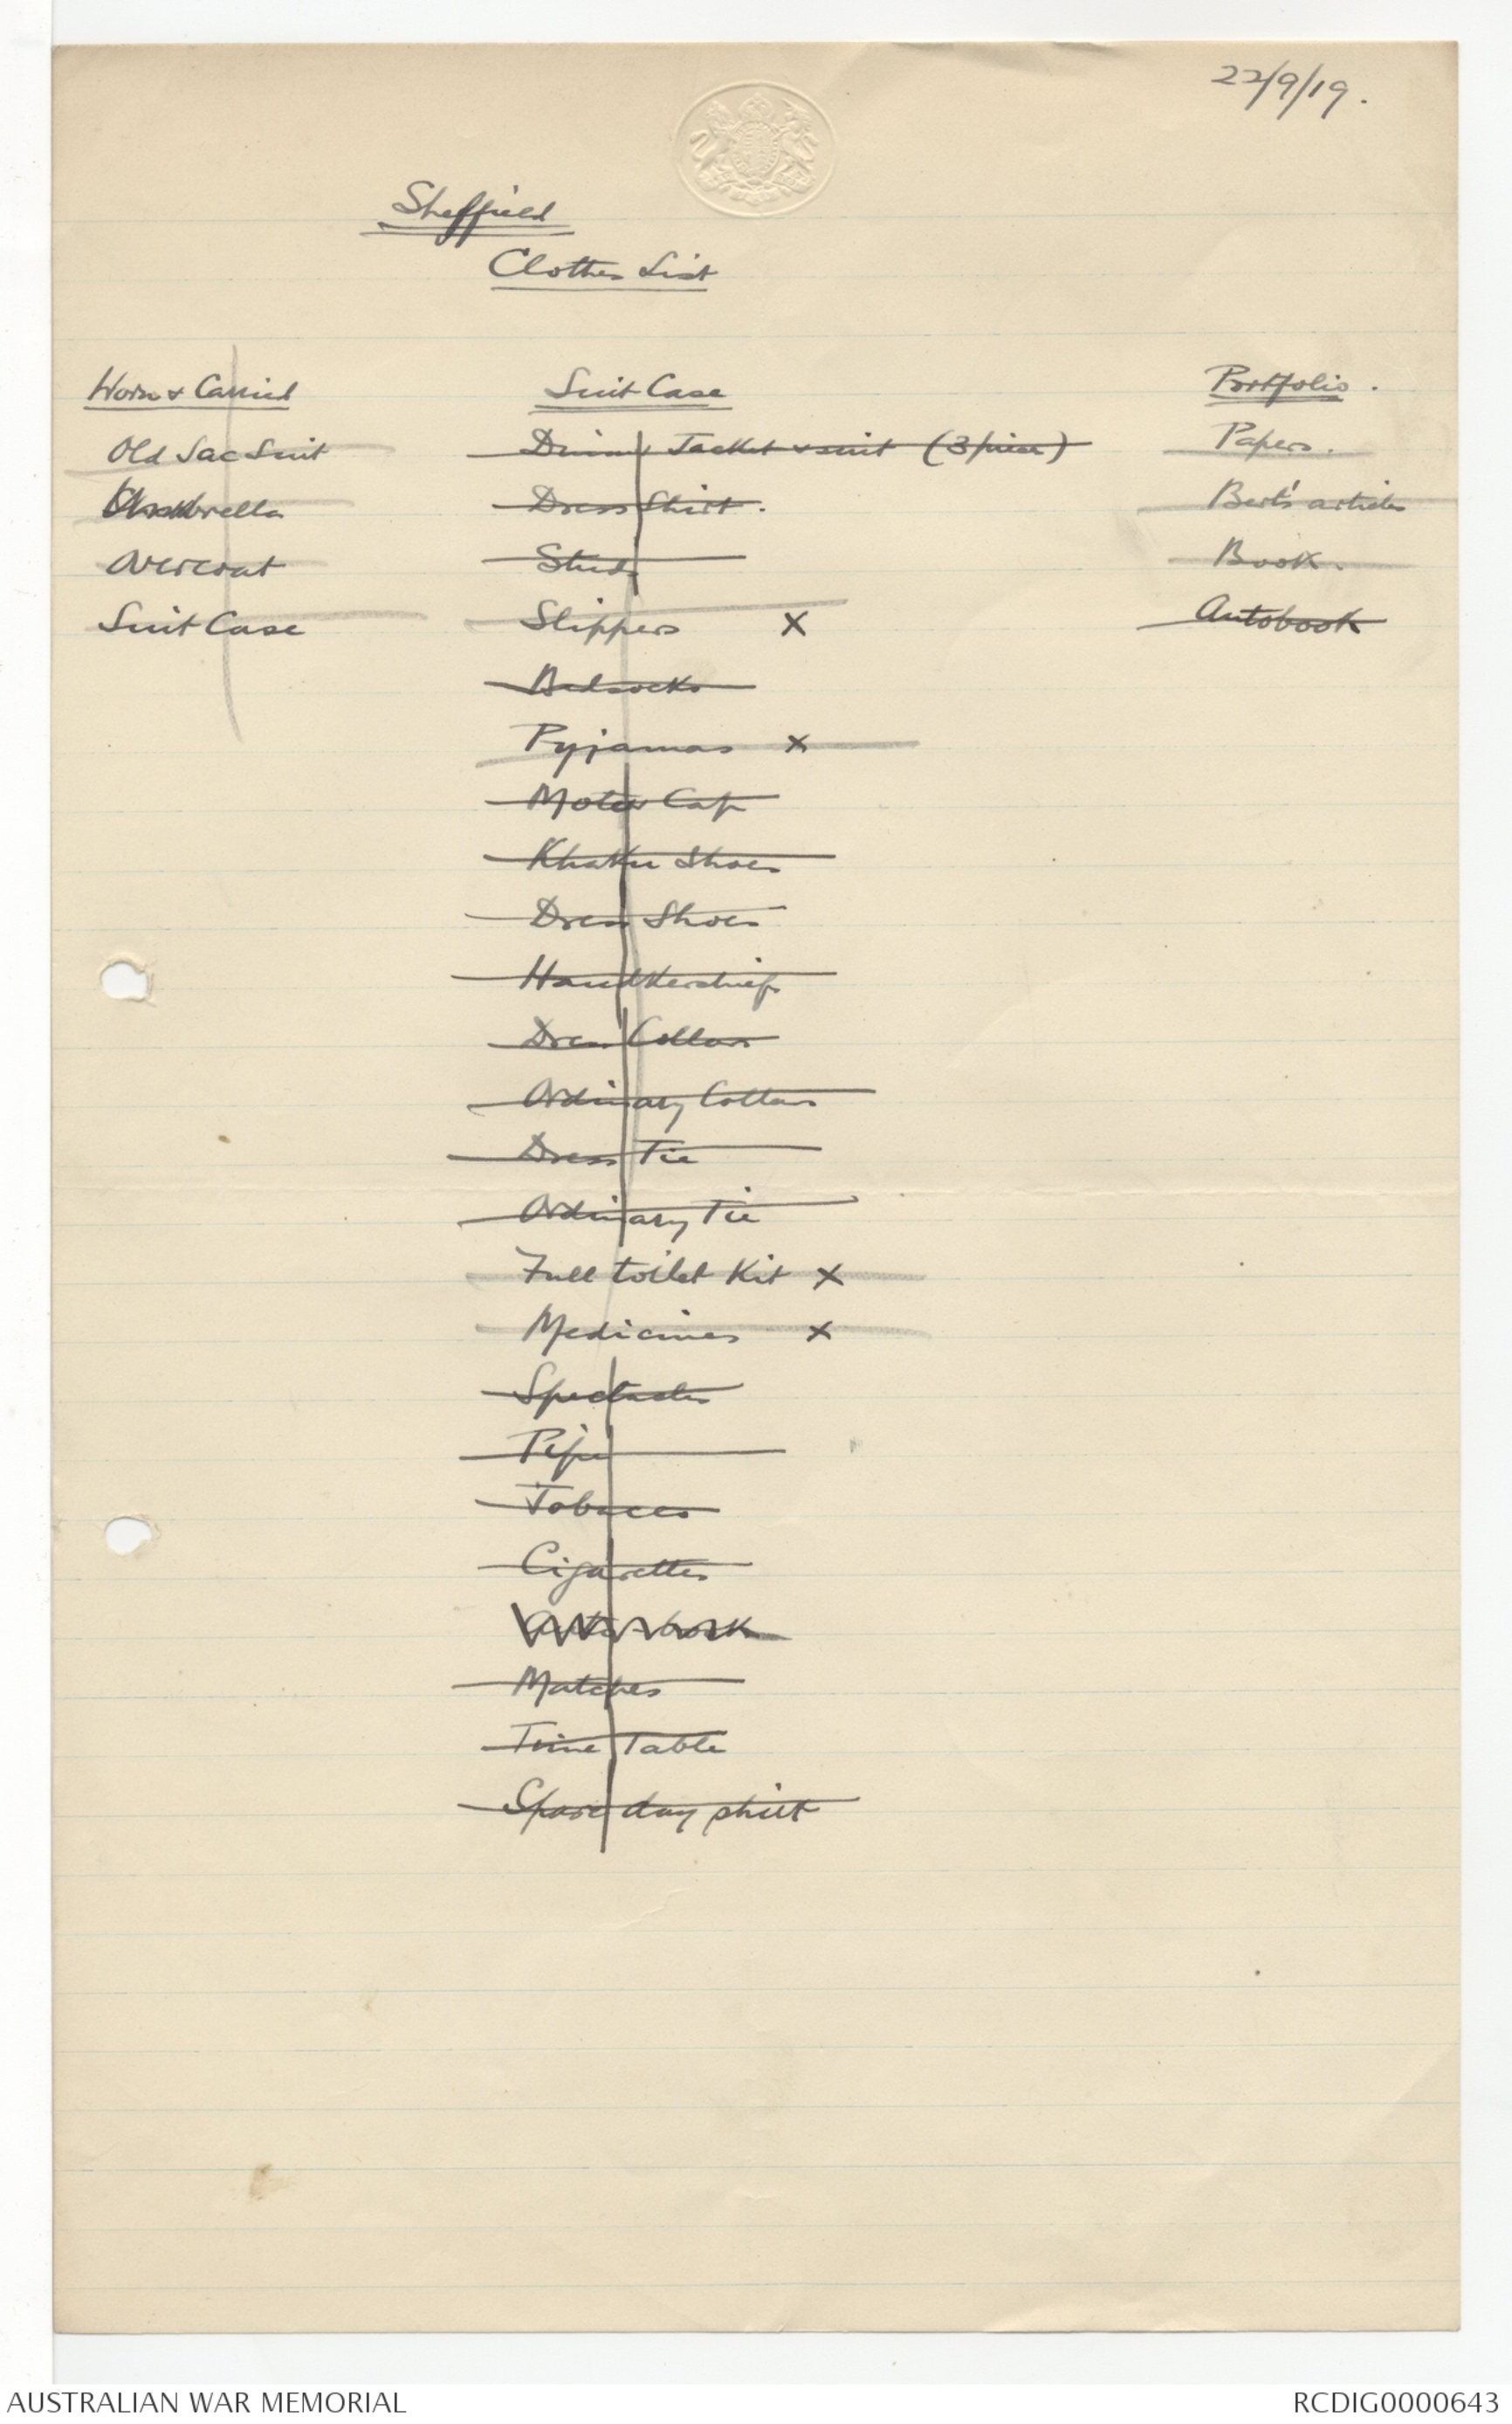 22/9/19.
Sheffield
Clothes List
Worn & Carried
Old Sac Suit
Umbrella
Overcoat
Suit Case
Suit Case
Dinner Jacket & suit (3 piece)
Dress Shirt.
Studs
Slippers X
Bedsocks
Pyjamas X
Motor Cap
Khaki Shoes
Dress Shoes
Handkerchiefs
Dress Collars
Ordinary Collars
Dress Tie
Ordinary Tie
Full toilet Kit X
Medicines X
Spectacles
Pipe
Tobacco
Cigarettes
Autobook
Matches
Time Table
Spare day shirt
Portfolio.
Papers.
Bert's articles
Book.
Autobook
AUSTRALIAN WAR MEMORIAL
RCDIG0000643